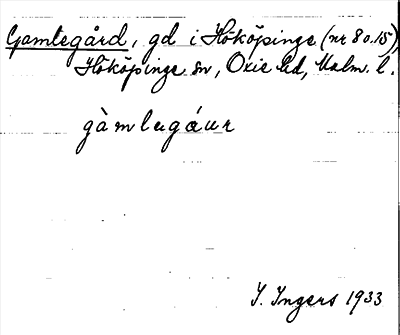 Gamlegård, gd i Hököpinge (nr 8 o. 15),
Hököpinge sn, Oxie hd, Malm. l.
gàmlagáur
I. Ingers 1933